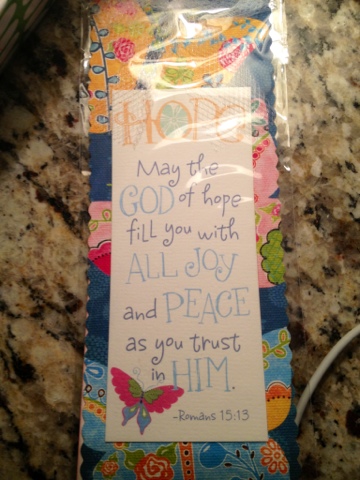 HOPE
May the
GOD of hope
fill you with
ALL JOY
and PEACE
as you trust
in HIM.
-Romans 15:13